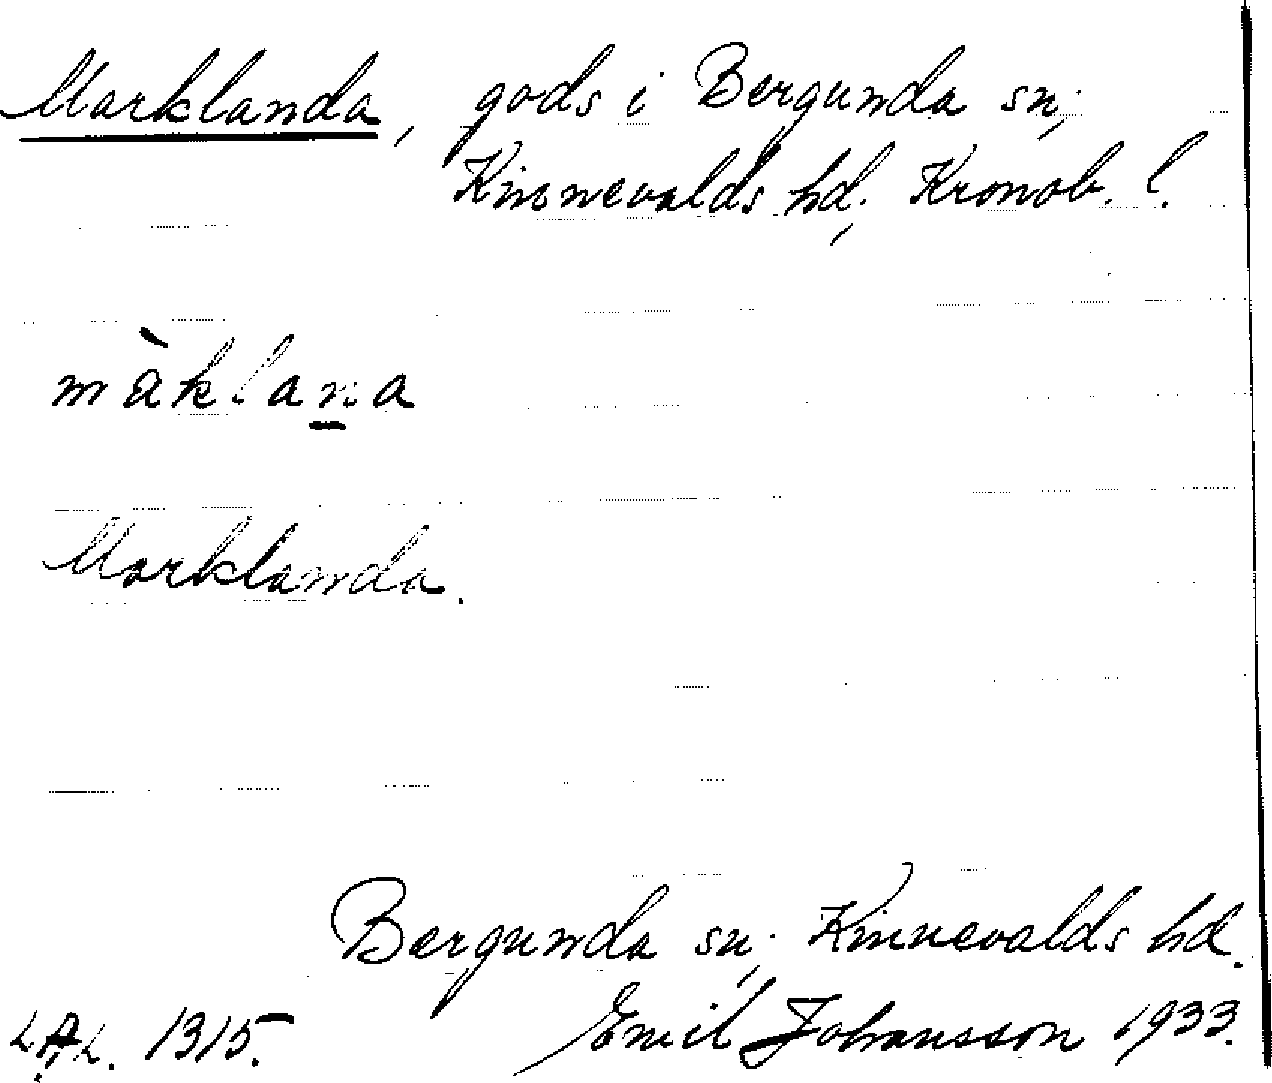 Marklanda, gods i Bergunda sn;
Kinnevalds hd; Kronob. l.
màklana
Marklanda.
Bergunda sn; Kinnevalds hd.
L.A.L. 1315. Emil Johansson 1933.